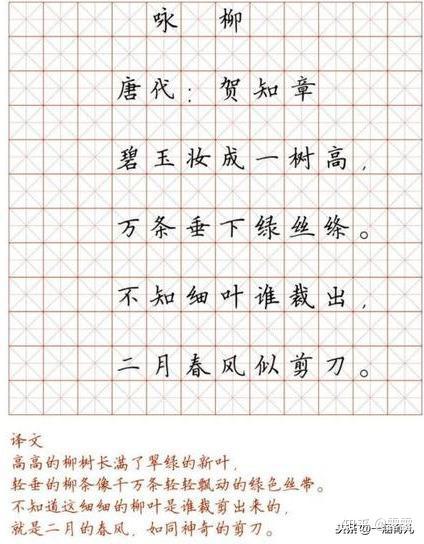 咏柳
唐代：贺知章
碧玉妆成一树高，
万条垂下绿丝绦。
不知细叶谁裁出，
二月春风似剪刀。
译文
高高的柳树长满了翠绿的新叶，
轻垂的柳条像千万条轻轻飘动的绿色丝带。
不知道这细细的柳叶是谁裁剪出来的，
就是二月的春风，如同神奇的剪刀。